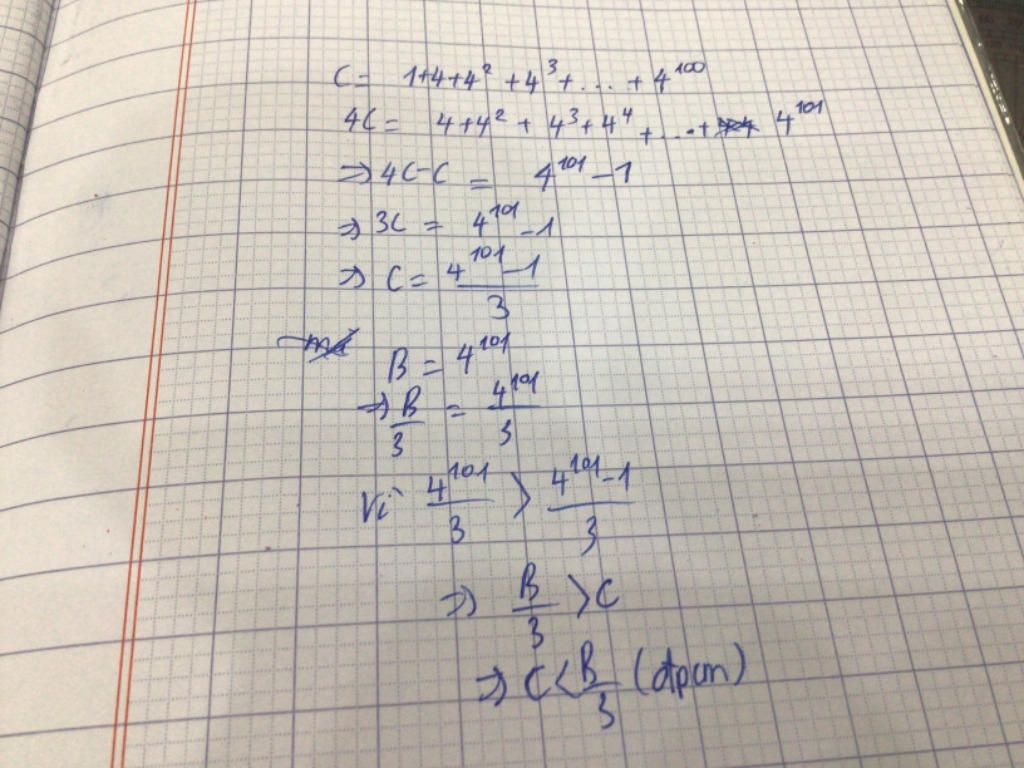 C = 1+4+4² +4³+ ... + 4¹⁰⁰
4C = 4+4² + 4³+4⁴ +...+ 4¹⁰¹
=> 4C-C = 4¹⁰¹ -1
=> 3C = 4¹⁰¹ -1
=> C = (4¹⁰¹ -1)/3
B = 4¹⁰¹
=> B/3 = 4¹⁰¹/3
Vì 4¹⁰¹/3 > (4¹⁰¹-1)/3
=> B/3 > C
=> C < B/3 (đtpcm)